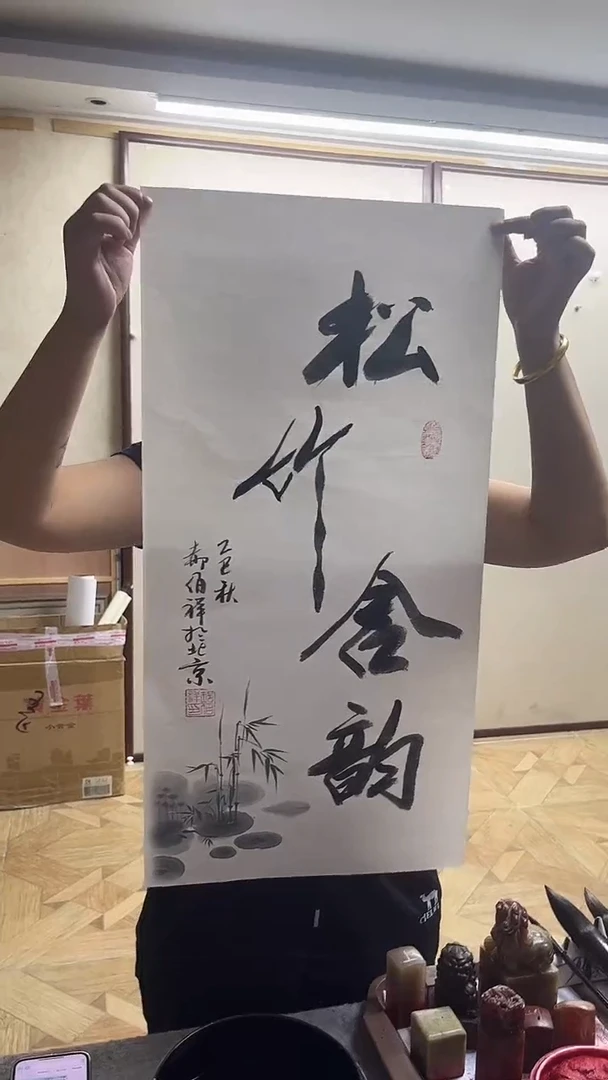 松竹含韵
乙巳秋
郝伯祥於北京